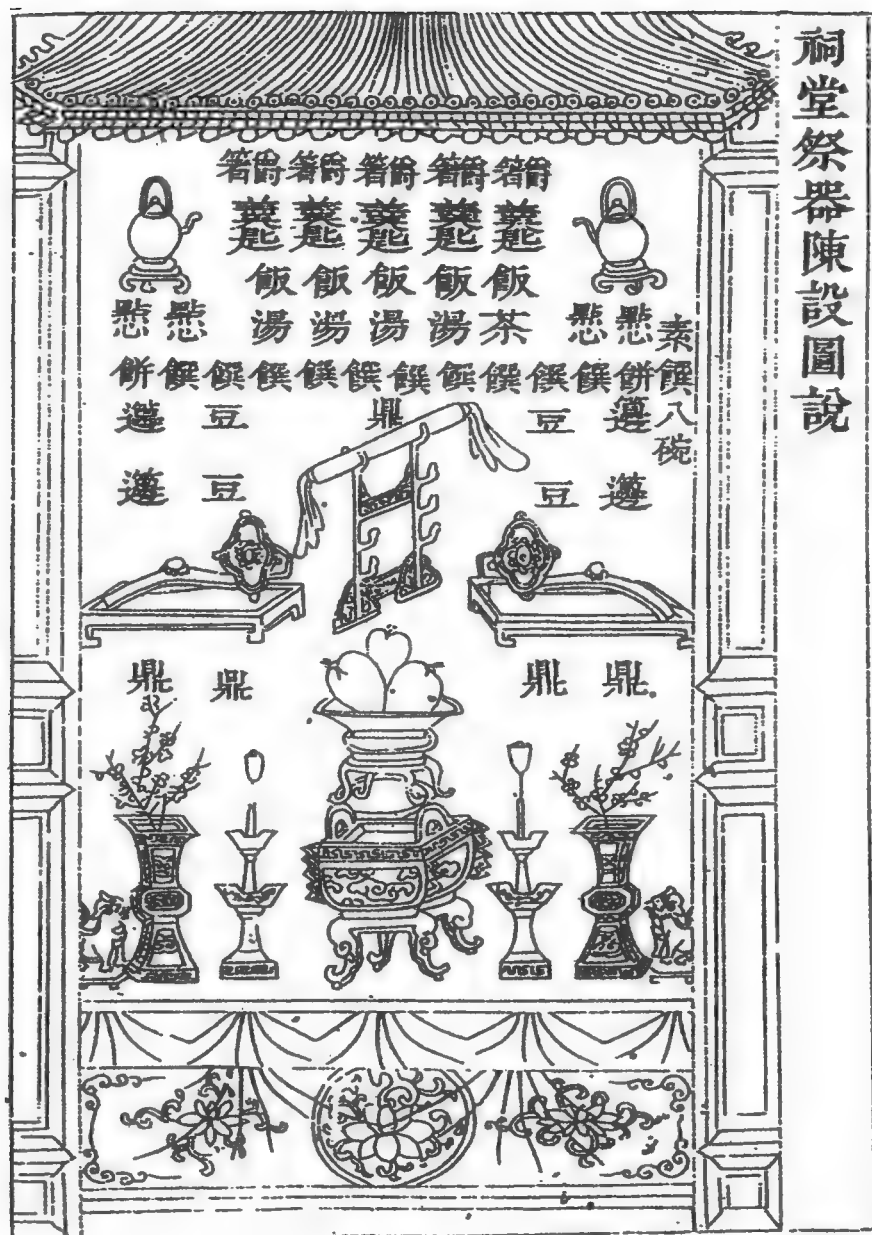 祠堂祭器陳設圖說
箸爵 箸爵 箸爵 箸爵 箸爵
羹匙 羹匙 羹匙 羹匙 羹匙
飯 飯 飯 飯 飯
點 點 湯 湯 湯 湯 茶 點 點
素饌八碗
餅 饌 饌 饌 饌 饌 饌 饌 饌 饌 饌 餅
籩 豆 鼎 豆 籩
籩 豆 豆 籩
鼎 鼎 鼎 鼎